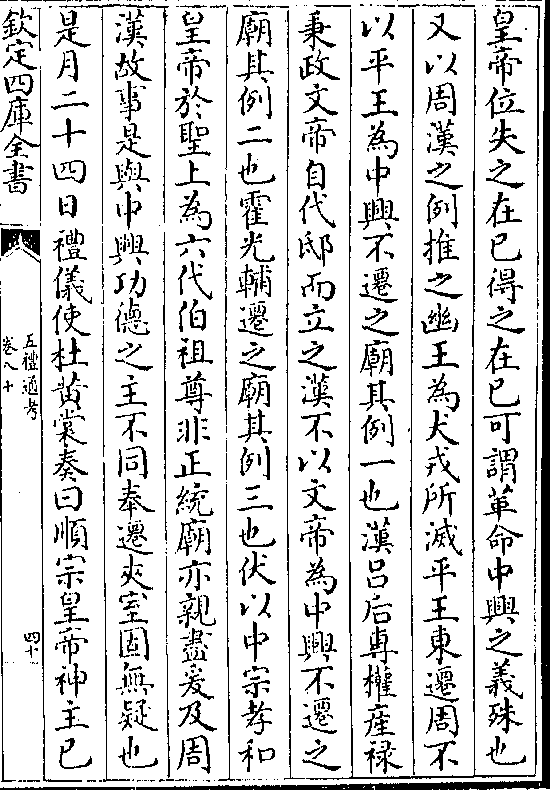 皇帝位失之在已得之在已可謂革命中興之義殊也
又以周漢之例推之幽王為犬戎所滅平王東遷周不
以平王為中興不遷之廟其例一也漢吕后專權産禄
秉政文帝自代邸而立之漢不以文帝為中興不遷之
廟其例二也霍光輔遷之廟其例三也伏以中宗孝和
皇帝於聖上為六代伯祖尊非正統廟亦親盡爰及周
漢故事是與中興功德之主不同奉遷夾室固無疑也
是月二十四日禮儀使杜黄裳奏曰順宗皇帝神主已
欽定四庫全書
五禮通考
卷八十
四十